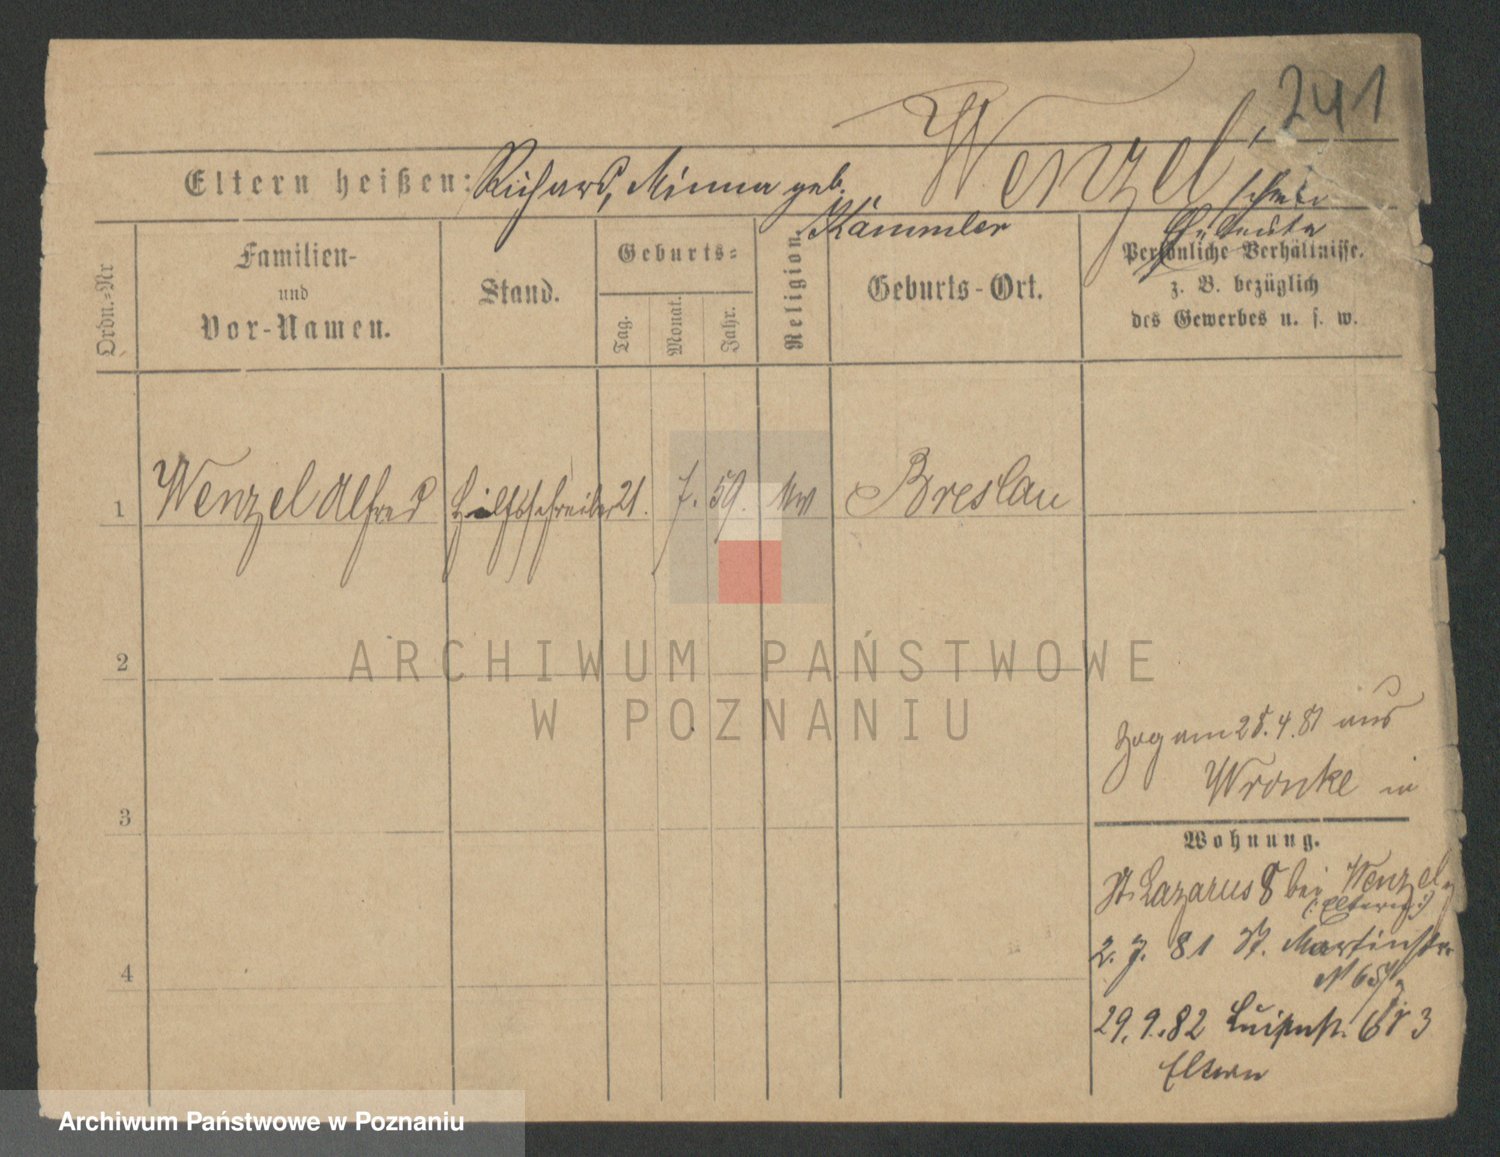 241
Wenzel
Eltern heißen: Richard, Minna geb.
Kämmler
Eheleute
Ordn.-Nr
Familien-
und
Vor-Namen.
Stand.
Geburts-
Tag.
Monat.
Jahr.
Religion.
Geburts-Ort.
Persönliche Verhältnisse.
z. B. bezüglich
des Gewerbes u. s. w.
1 Wenzel Alfred Hilfsschreiber 21. 7. 59. Breslau
2
ARCHIWUM PAŃSTWOWE
W POZNANIU
zog am 25.4.81 aus
Wronke in
3
Wohnung.
St. Lazarus 8 bei Wenzel
(: Eltern :)
2. 7. 81 St. Martinstr.
4
N 65
29. 9. 82 Luisenstr. 3
Eltern
Archiwum Państwowe w Poznaniu